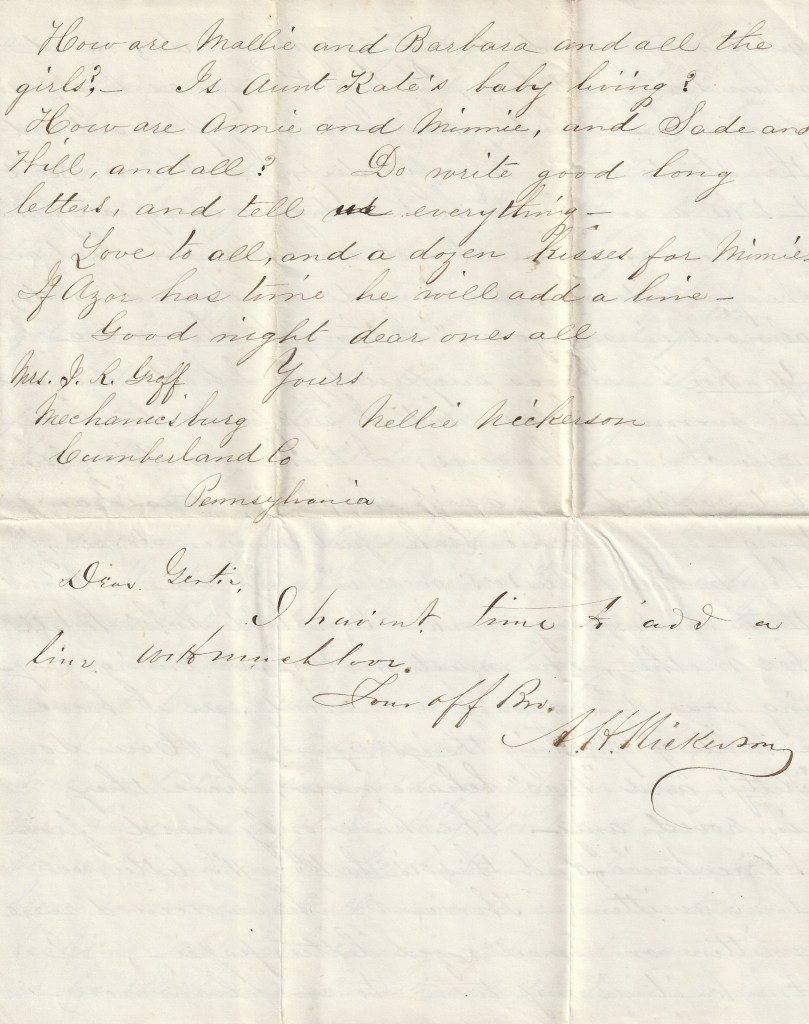 How are Mallie and Barbara and all the
girls?— Is Aunt Kate's baby living?
How are Annie and Minnie, and Sade and
Will, and all? Do write good long
letters, and tell us everything—
Love to all, and a dozen kisses for Mimie.
If Azor has time he will add a line—
Good night dear ones all
Mrs. J. R. Groff Yours
Mechanicsburg Nellie Nickerson
Cumberland Co
Pennsylvania
Dear Gertie,
I havent time to add a
line with much love.
Your aff Bro.
A. H. Nickerson